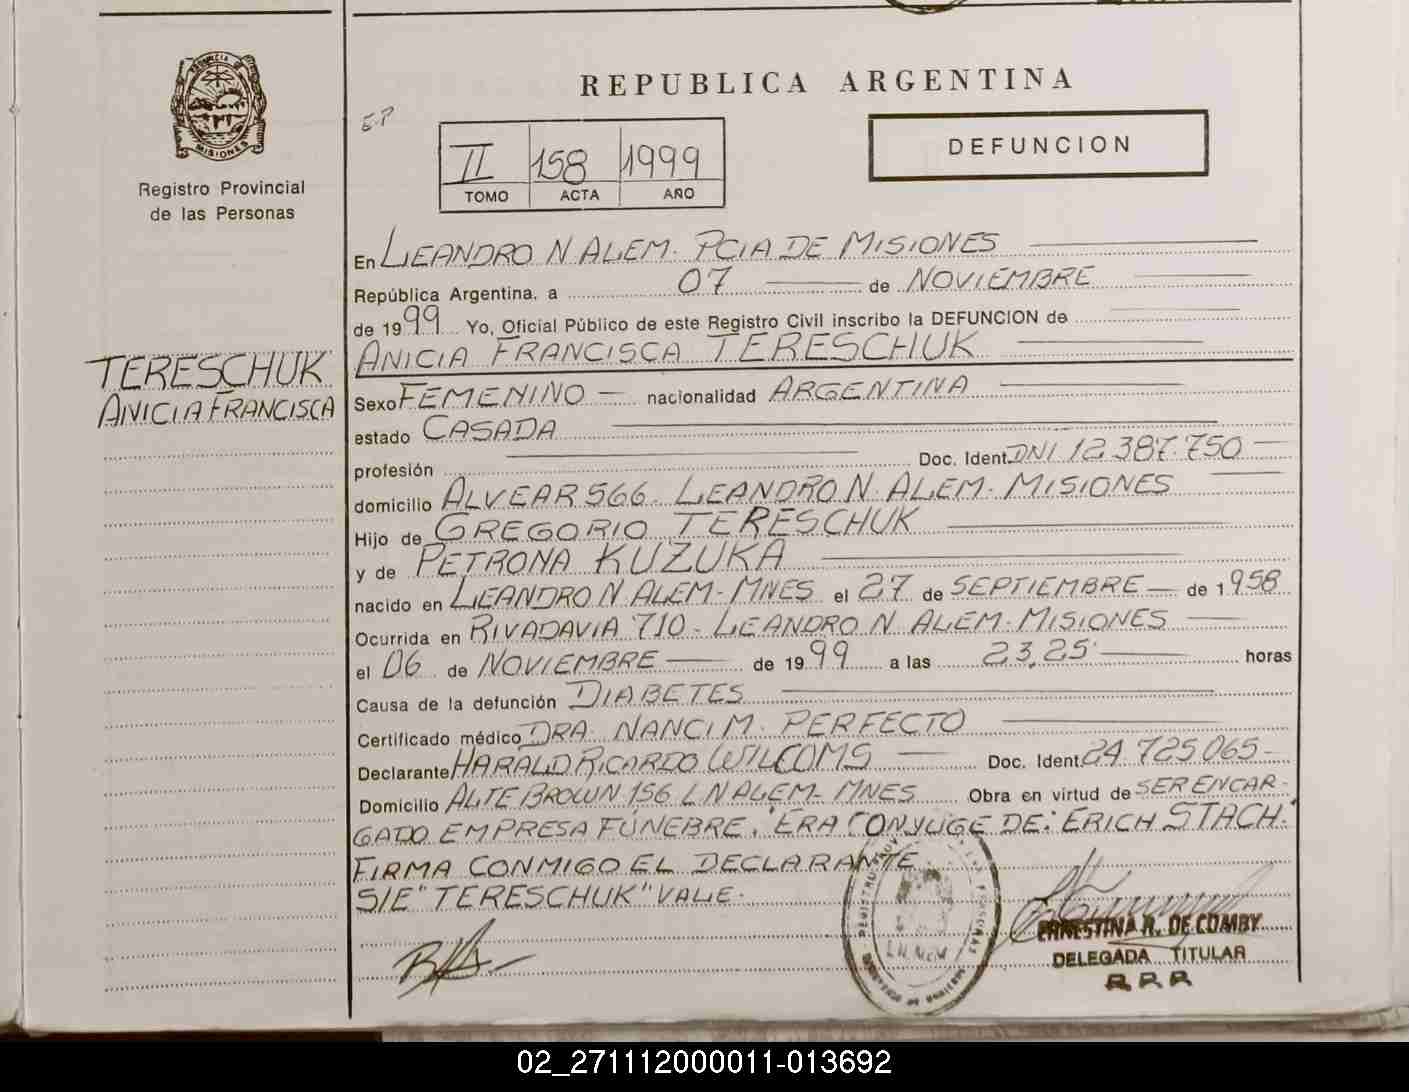 PROVINCIA DE
MISIONES
Registro Provincial
de las Personas
TERESCHUK
ANICIA FRANCISCA
REPUBLICA ARGENTINA
E.P
II 158 1999
TOMO ACTA AÑO
DEFUNCION
En LEANDRO N ALEM. PCIA DE MISIONES
República Argentina, a 07 de NOVIEMBRE
de 1999 Yo, Oficial Público de este Registro Civil inscribo la DEFUNCION de
ANICIA FRANCISCA TERESCHUK
Sexo FEMENINO nacionalidad ARGENTINA
estado CASADA
profesión Doc. Ident. DNI 12.387.750
domicilio ALVEAR 566. LEANDRO N. ALEM. MISIONES
Hijo de GREGORIO TERESCHUK
y de PETRONA KUZUKA
nacido en LEANDRO N ALEM- MNES el 27 de SEPTIEMBRE de 1958
Ocurrida en RIVADAVIA 710 - LEANDRO N ALEM. MISIONES
el 06 de NOVIEMBRE de 1999 a las 23,25 horas
Causa de la defunción DIABETES
Certificado médico DRA. NANCI M. PERFECTO
Declarante HARALD RICARDO WILCOMS Doc. Ident. 24.725.065
Domicilio ALTE BROWN 156 L N ALEM- MNES Obra en virtud de SER ENCAR-
GADO EMPRESA FÚNEBRE. "ERA CONYUGE DE: ERICH STACH."
FIRMA CONMIGO EL DECLARANTE
S/E "TERESCHUK" VALE.
ERNESTINA R. DE COMBY
DELEGADA TITULAR
R.R.R
L.N. ALEM
02_271112000011-013692